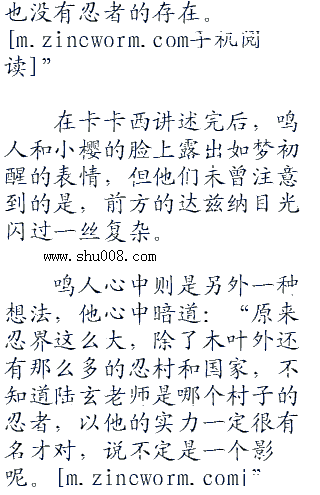 也没有忍者的存在。
[m.zincworm.com手机阅
读]”
在卡卡西讲述完后，鸣
人和小樱的脸上露出如梦初
醒的表情，但他们未曾注意
到的是，前方的达兹纳目光
闪过一丝复杂。
www.shu008.com
鸣人心中则是另外一种
想法，他心中暗道：“原来
忍界这么大，除了木叶外还
有那么多的忍村和国家，不
知道陆玄老师是哪个村子的
忍者，以他的实力一定很有
名才对，说不定是一个影
呢。[m.zincworm.com]”